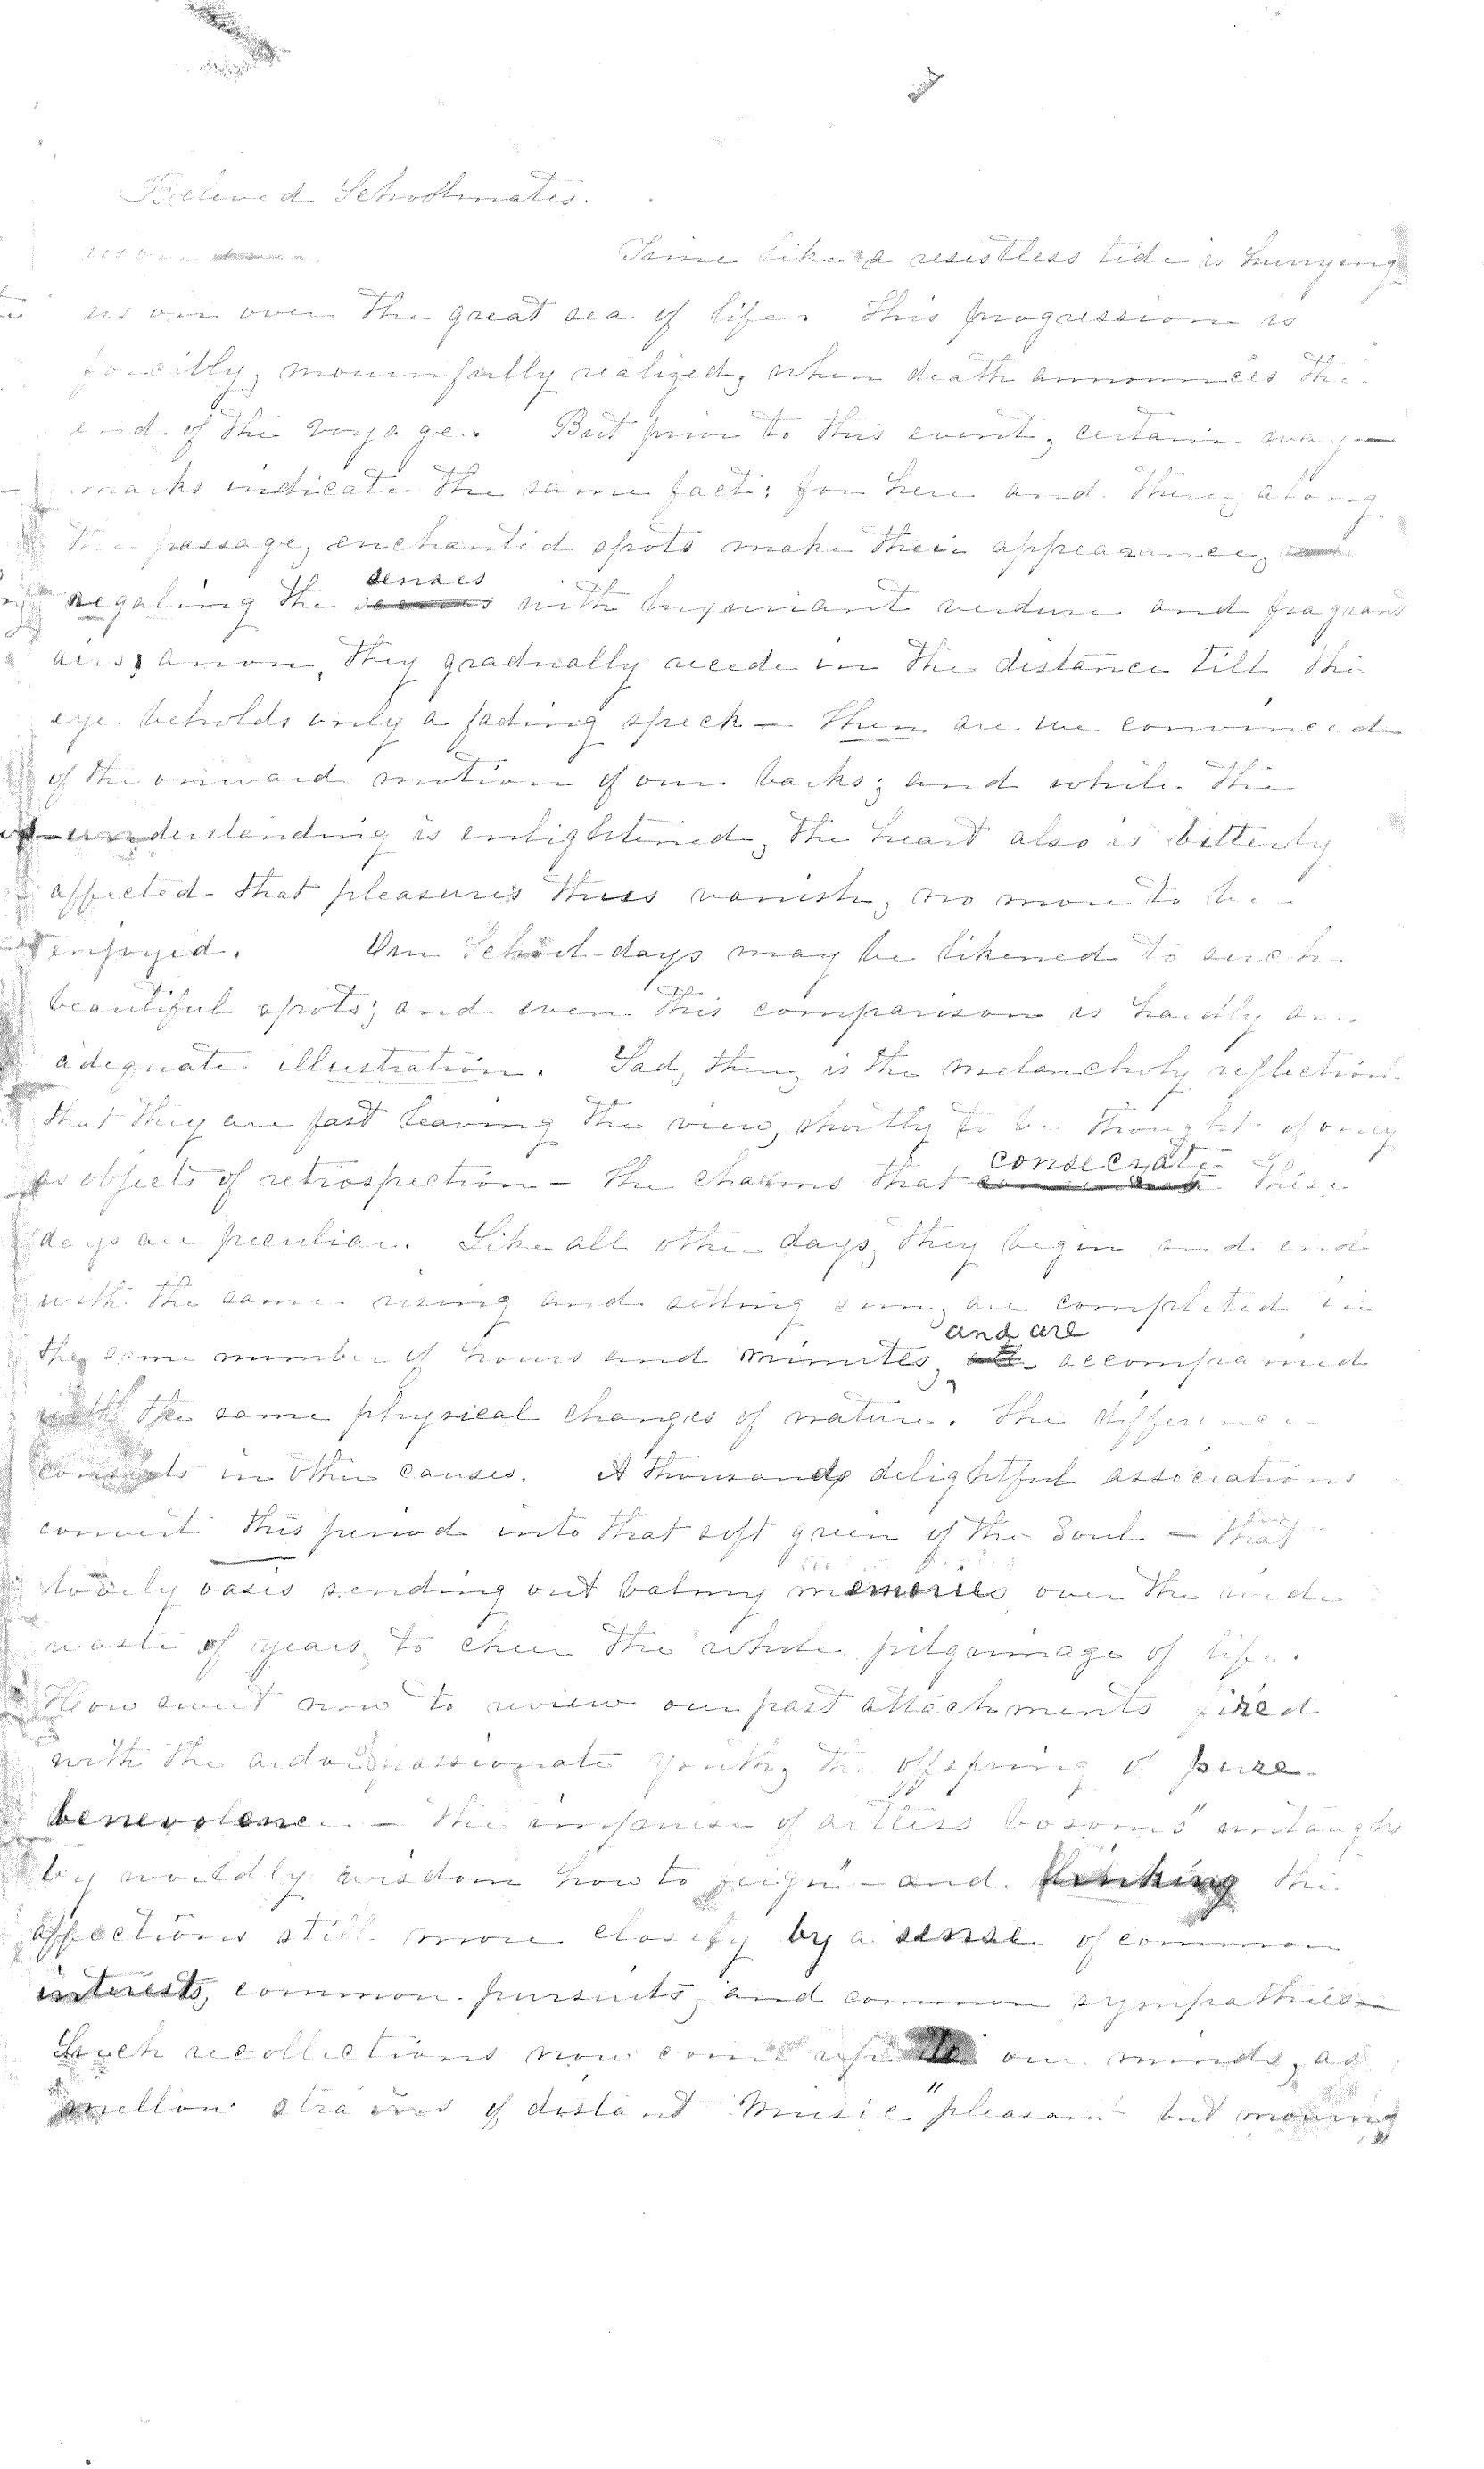 Beloved Schoolmates.
Time like a resistless tide is hurrying
us on over the great sea of life. This progression is
forcibly, mournfully realized, when death announces the
end of the voyage. But prior to this event, certain way-
marks indicate the same fact: for here and there, along
the passage, enchanted spots make their appearance,
senses
regaling the with luxuriant verdure and fragrant
airs; anon, they gradually recede in the distance till the
eye beholds only a fading speck - then are we convinced
of the onward motion of our barks; and while the
understanding is enlightened, the heart also is bitterly
affected that pleasures thus vanish, no more to be
enjoyed. Our School-days may be likened to such
beautiful spots; and even this comparison is hardly an
adequate illustration. Sad, then, is the melancholy reflection
that they are fast leaving the view, shortly to be thought of only
consecrate
as objects of retrospection - the charms that these
days are peculiar. Like all other days, they begin and end
with the same rising and setting sun, are completed in
and are
the same number of hours and minutes, accompanied
with the same physical changes of nature. The difference
consists in other causes. A thousand delightful associations
convert this period into that soft green of the Soul - that
lovely oasis sending out balmy memories over the wide
waste of years, to cheer the whole pilgrimage of life.
How sweet now to review our past attachments fired
with the ardor passionate youth, the offspring of pure
benevolence - the impulse of artless bosoms "untaught
by worldly wisdom how to feign" - and linking the
affections still more closely by a sense of common
interests, common pursuits, and common sympathies -
Such recollections now come up to our minds, as
mellow strains of distant Music "pleasant but mourning